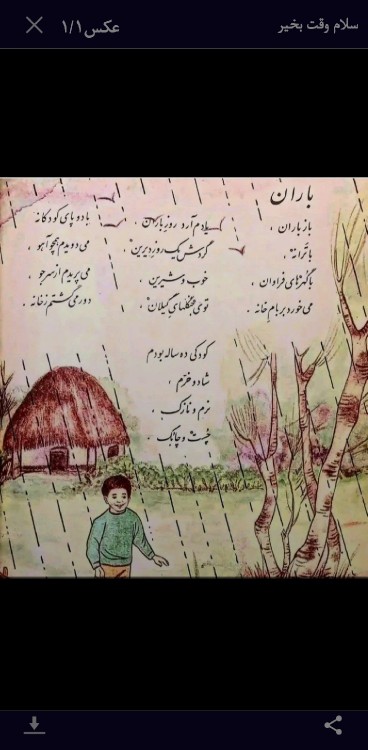 سلام وقت بخیر
عکس ۱/۱
باران
باز باران،
با ترانه
با گهرهای فراوان
می‌خورد بر بام خانه.
یادم آرد روز باران،
گردش یک روز دیرین،
خوب و شیرین
توی جنگلهای گیلان
با دو پای کودکانه
می دویدم همچو آهو،
می پریدم از سر جو
دور می گشتم ز خانه.
کودکی ده ساله بودم
شاد و خرّم،
نرم و نازک،
چست و چابک